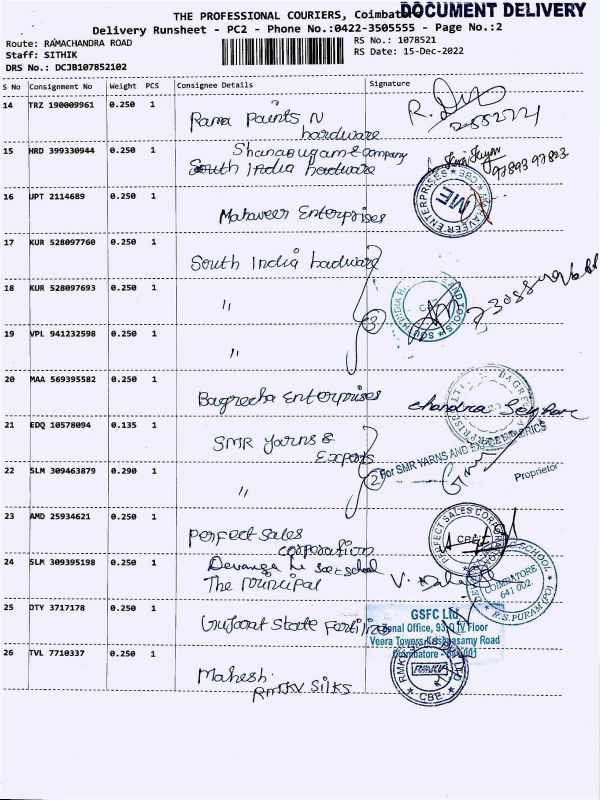 THE PROFESSIONAL COURIERS, Coimbatore
DOCUMENT DELIVERY
Delivery Runsheet - PC2 - Phone No.:0422-3505555 - Page No.:2
Route: RAMACHANDRA ROAD
RS No.: 1078521
Staff: SITHIK
RS Date: 15-Dec-2022
DRS No.: DCJB107852102
S No Consignment No Weight PCS Consignee Details Signature
14 TRZ 190009961 0.250 1
Rama Paints N
hardware
15 HRD 399330944 0.250 1
Shanmugam & company
South India hardware
97893 97823
16 UPT 2114689 0.250 1
Mahaveer Enterprises
MAHAVEER ENTERPRISES * CBE *
ME
17 KUR 528097760 0.250 1
South India hardware
18 KUR 528097693 0.250 1
"
3
19 VPL 941232598 0.250 1
"
20 MAA 569395582 0.250 1
Bagrecha Enterprises
Chandra Sekhar
21 EDQ 10578094 0.135 1
SMR Yarns &
Exports
For SMR YARNS AND
22 SLM 309463879 0.290 1
"
2
Proprietor
23 AMD 25934621 0.250 1
Perfect Sales
corporation
PERFECT SALES CORPORATION
CBE
24 SLM 309395198 0.250 1
Devanga Hr sec school
The Principal
COIMBATORE
641 002.
R.S.PURAM (PO)
25 DTY 3717178 0.250 1
Gujarat State Fertilizer
GSFC Ltd
Zonal Office, 93,D IV Floor
Veera Towers, Krishnasamy Road
Coimbatore - 641001
26 TVL 7710337 0.250 1
Mahesh
RMKV Silks
RMKV
CBE